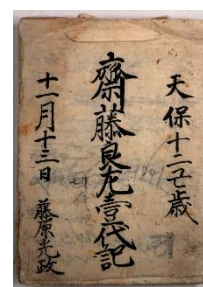 天保十二丑歳
齋藤良左壹代記
十一月十三日 藤原光政